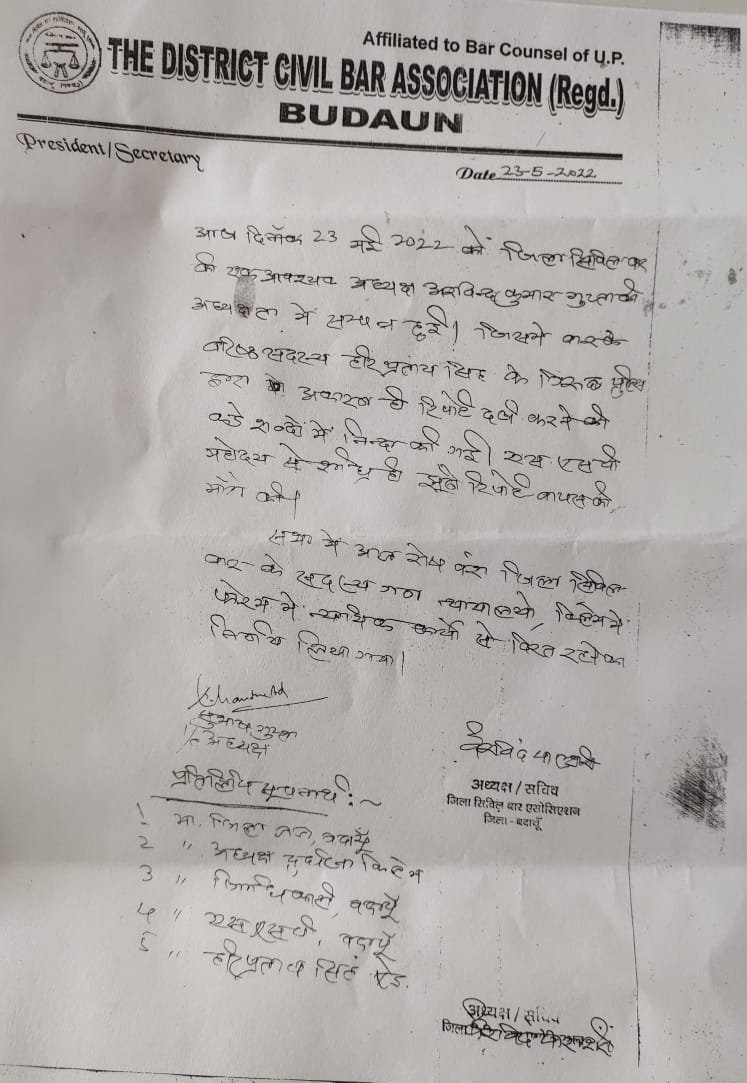 Affiliated to Bar Counsel of U.P.
THE DISTRICT CIVIL BAR ASSOCIATION (Regd.)
BUDAUN
President/Secretary
Date 23-5-2022
आज दिनाँक 23 मई 2022 को जिला सिविल बार
की एक आवश्यक अध्यक्ष अरविन्द कुमार गुप्ता की
अध्यक्षता में सम्पन्न हुई। जिसमे बार के
वरिष्ठ सदस्य हरि प्रताप सिंह के विरूद्ध पुलिस
द्वारा अकारण ही रिपोर्ट दर्ज करने की
कडे शब्दों में निन्दा की गई। एस एस पी
महोदय से शीघ्र ही झूठी रिपोर्ट वापस की
माँग की।
सभा मे आज रोष वश जिला सिविल
बार के सदस्य गण न्यायालयो,
फोरम मे न्यायिक कार्यो से विरत रहने का
निर्णय लिया गया।
सुभाष गुप्ता
अध्यक्ष
अध्यक्ष / सचिव
जिला सिविल बार एसोसिएशन
जिला - बदायूँ
प्रतिलिपि सूचनार्थ :-
1 मा. जिला जज, बदायूँ
2 " अध्यक्ष
3 " जिलाधिकारी, बदायूँ
4 " एस एस पी, बदायूँ
5 " हरि प्रताप सिंह ऐड.
अध्यक्ष / सचिव
जिला